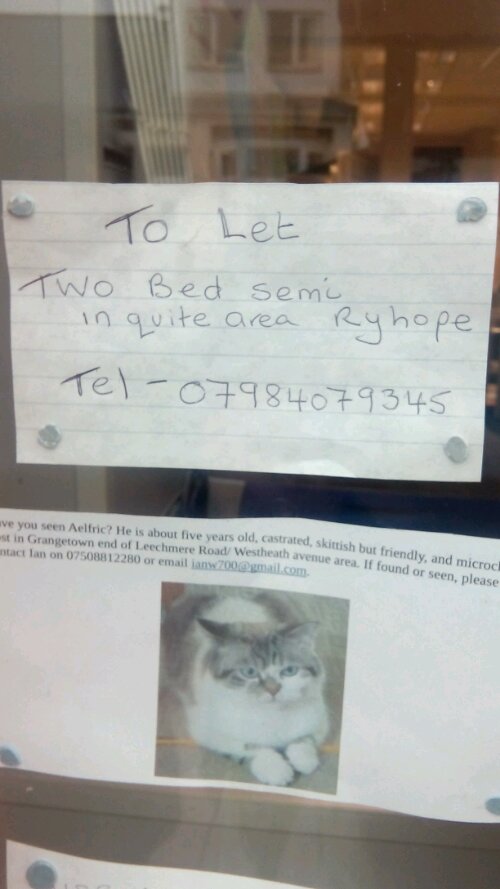 To Let
Two Bed semi
in quite area Ryhope
Tel - 07984079345
ve you seen Aelfric? He is about five years old, castrated, skittish but friendly, and microc
st in Grangetown end of Leechmere Road/ Westheath avenue area. If found or seen, please
ntact Ian on 07508812280 or email ianw700@gmail.com.